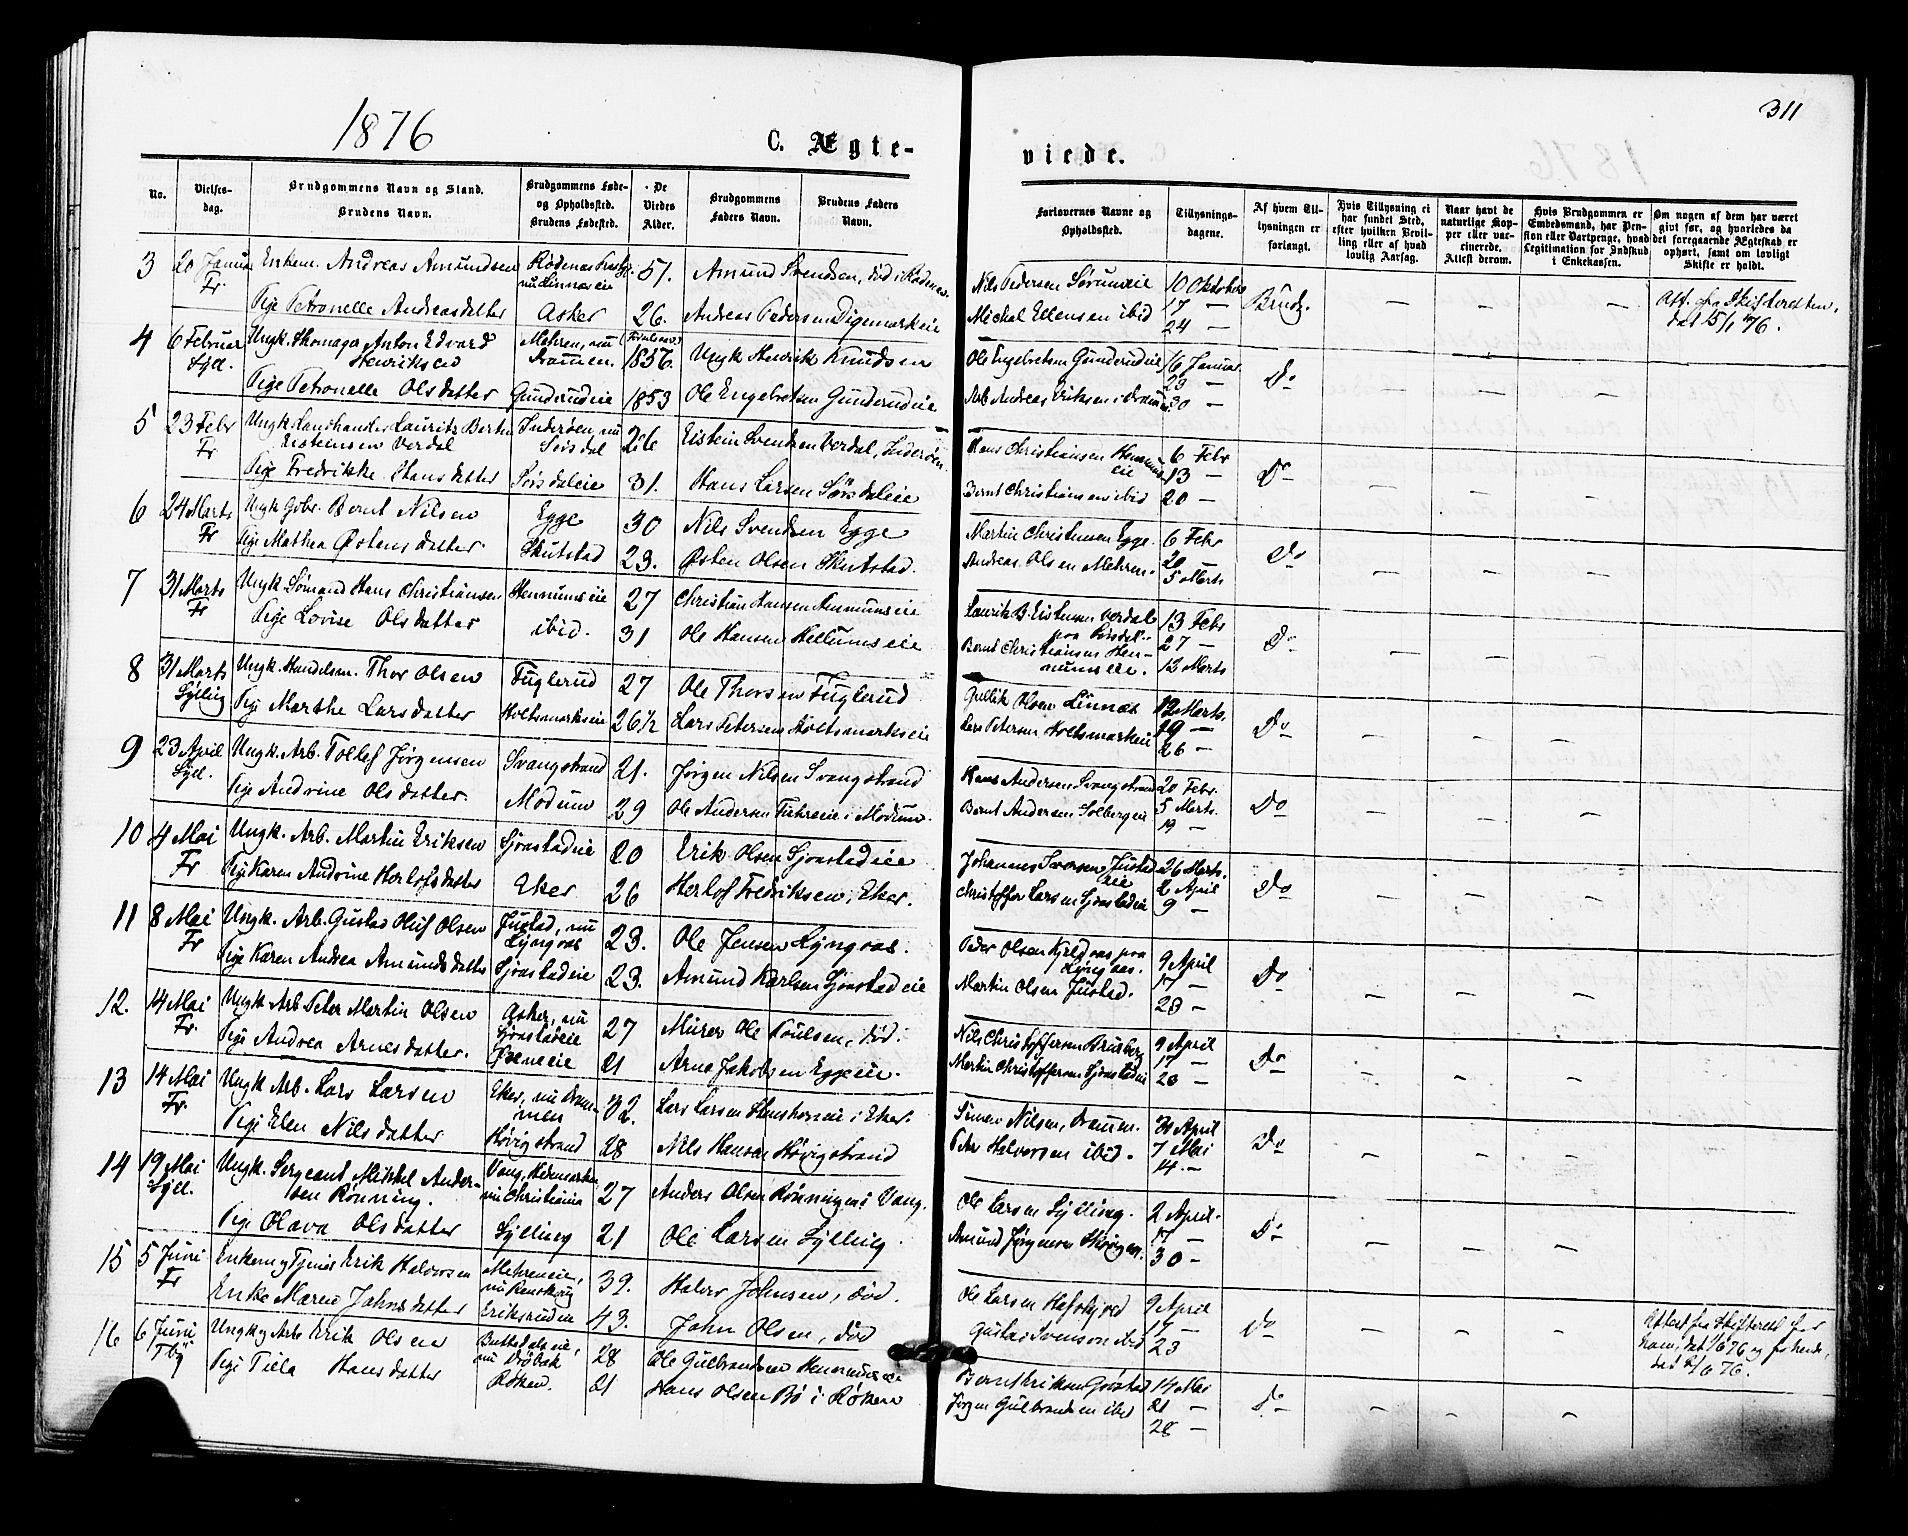 1876
C. Ægte-
viede.
311
No.
Vielses-
dag.
Brudgommens Navn og Stand.
Brudens Navn.
Brudgommens Føde-
og Opholdssted.
Brudens Fødested.
De
Viedes
Alder.
Brudgommens
Faders Navn.
Brudens Faders
Navn.
Forlovernes Navne og
Opholdssted.
Tillysnings-
dagene.
Af hvem Til-
lysningen er
forlangt.
Hvis Tillysning ei
har fundet Sted,
efter hvilken Bevil-
ling eller af hvad
lovlig Aarsag.
Naar havt de
naturlige Kop-
per eller vac-
cinerede.
Attest derom.
Hvis Brudgommen er
Embedsmand, har Pen-
sion eller Vartpenge, hvad
Legitimation for Indskud
i Enkekassen.
Om nogen af dem har været
givt før, og hvorledes da
det foregaaende Ægteskab er
ophørt, samt om lovligt
Skifte er holdt.
3 20 Januar Enkem. Andreas Amundsen 51. Amund Svendsen, død i Rødenes Nils Pedersen 10 Oktober
Fr. Michal Ellensen ibid 17 — Brudg. — — —
Pige Petronelle Andreasdatter Asker 26. Andreas Pedersen Digemarkeie 24 —
4 6 Februar Ungk. Skomager Anton Edvard Mehren, nu 1856. Ungk Henrik Knudsen Ole Engebretsen Gunderudeie 16 Januar
Syll. Henriksen Drammen. 23 — Do — — —
Pige Petronelle Olsdatter Gunderudeie 1853 Ole Engebretsen Gunderudeie Arb Andreas Eriksen i Drammen 30 —
5 23 Febr Ungk Landhandler Laurits Bertin Inderøen, nu 26 Eistein Svendsen Verdal, Inderøen. Hans Christiansen Hennums 6 Febr
Fr Eisteinsen Verdal Sørsdal eie 13 — Do — — —
Pige Fredrikke Hansdatter Sørsdaleie 31. Hans Larsen Sørsdaleie Bernt Christiansen ibid 20 —
6 24 Marts Ungk Gbr. Bernt Nilsen Egge 30 Nils Svendsen Egge Martin Christensen Egge. 6 Febr
Fr Pige Mathea Østensdatter. Skutstad 23. Østen Olsen Skutstad. Andreas Olsen Mehren. 20 — Do — — —
5 Marts
7 31 Marts Ungk Sømand Hans Christiansen Hennumseie 27 Christian Hansen Hennumseie Laurits B. Eisteinsen Verdal 13 Febr
Fr Pige Lovise Olsdatter ibid. 31 Ole Hansen Hellumseie paa Sørsdal. 27 — Do — — —
Bernt Christiansen Hen-
numseie. 12 Marts
8 31 Marts Ungk. Handelsm. Thor Olsen Fuglerud 27 Ole Thorsen Fuglerud Gullik Olsen Linnes 12 Marts.
Sylling Pige Marthe Larsdatter Holtsmarkseie 26½ Lars Petersen Holtsmarkseie Lars Petersen Holtsmarkeie 19 — Do — — —
26 —
9 23 April Ungk. Arb. Tollef Jørgensen Svangstrand 21. Jørgen Nilsen Svangstrand Hans Andersen Svangstrand 20 Febr.
Syll. Pige Andrine Olsdatter. Modum 29 Ole Andersen i Modum. Bernt Andersen Solbergeie 5 Marts. Do — — —
19 —
10 4 Mai Ungk. Arb. Martin Eriksen Sjøstadeie 20 Erik Olsen Sjøstadeie Johannes Iversen Justad 26 Marts.
Fr Pige Karen Andrine Herlofsdatter Eker 26 Herlof Fredriksen, Eker. eie 2 April Do — — —
Christoffer Larsen Sjøstadeie 9 —
11 8 Mai Ungk. Arb. Gustav Oluf Olsen Justad, nu 23. Ole Jensen Lyngaas. Peder Olsen paa 9 April
Fr Lyngaas Lyngaas. 17 — Do — — —
Pige Karen Andrea Amundsdatter Sjøstadeie 23. Amund Karlsen Sjøstadeie Martin Olsen Justad. 23 —
12. 14 Mai Ungk Arb Peter Martin Olsen Asker, nu 27 Murer Ole Poulsen, død. Nils Christoffersen 9 April
Fr. Sjøstadeie 17 — Do — — —
Pige Andrea Arnesdatter. 21 Arne Jakobsen Eggeie. Martin Christoffersen Sjøstadeie 23 —
13 14 Mai Ungk Arb. Lars Larsen Eker, nu Dram- 32. Lars Larsen i Eker. Simen Nilsen, Drammen. 30 April
Fr. men 7 Mai Do — — —
Pige Elen Nilsdatter Høvigstrand 28 Nils Hansen Høvigstrand Peter Halvorsen ibid. 14 —
14 19 Mai Ungk. Sergeant Mikkel Ander- Vang, Hedemarken 27 Anders Olsen Rønningen i Vang. Ole Larsen Sylling. 2 April.
Syll. sen Rønning. nu Christiania 17 — Do — — —
Pige Olava Olsdatter Sylling 21 Ole Larsen Sylling Amund Jørgensen 30 —
15 5 Juni Enkem og Tjener Erik Halvorsen Mehreneie, 39. Halvor Johnsen, død. Ole Larsen 9 April
Fr nu 17 — Do — — —
Enke Maren Johnsdatter Eriksruden 43. John Olsen, død Gustav Svensen ibid 23
16 6 Juni Ungk og Arb Erik Olsen 28 Ole Gulbrandsen Hennumseie Bernt Eriksen 14 Mai
Tby nu Drøbak 21 — Do — — —
Pige Tiela Hansdatter Røken. 21 Hans Olsen Bø i Røken Jørgen Gulbrandsen ibid 28 —
Att. fra Skifteretten,
dat 15/1 76.
Attest fra Skifteret for
ham, dat 1/6 76 og for hende,
dat 2/6 76.